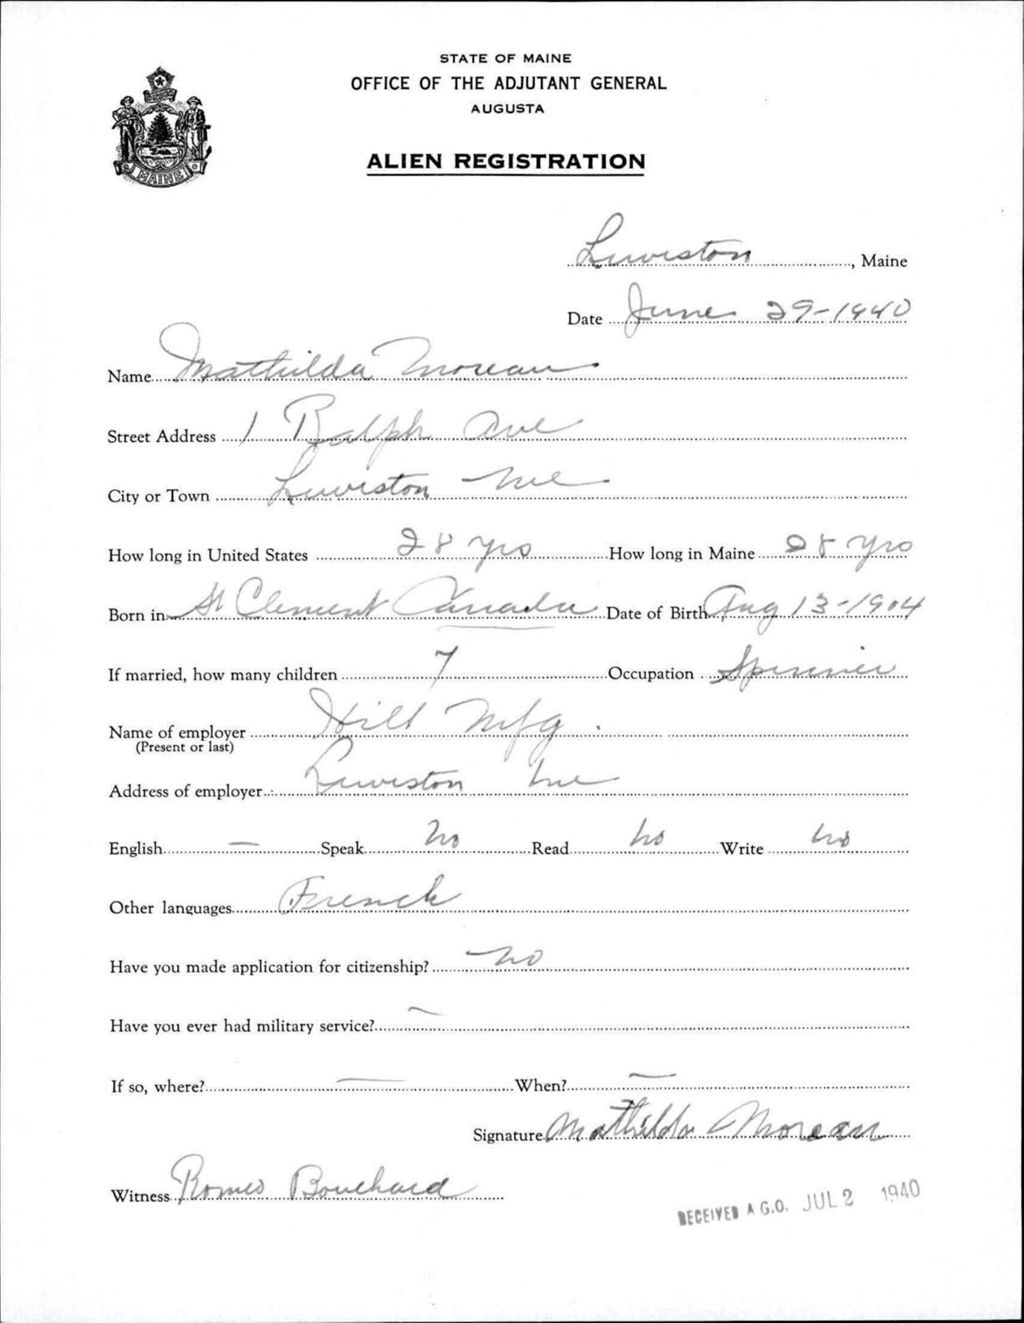 STATE OF MAINE
OFFICE OF THE ADJUTANT GENERAL
AUGUSTA
ALIEN REGISTRATION
MAINE
Lewiston, Maine
Date June 29-1940
Name Mathilda Moreau
Street Address 1 Ralph Ave
City or Town Lewiston Me
How long in United States 28 yrs How long in Maine 28 yrs
Born in St Clement Canada Date of Birth Aug 13-1904
If married, how many children 7 Occupation Spinner
Name of employer Hill Mfg.
(Present or last)
Address of employer Lewiston Me
English — Speak No Read No Write No
Other languages French
Have you made application for citizenship? No
Have you ever had military service? —
If so, where? — When? —
Signature Mathilda Moreau
Witness Romeo Bouchard
RECEIVED A.G.O. JUL 2 1940